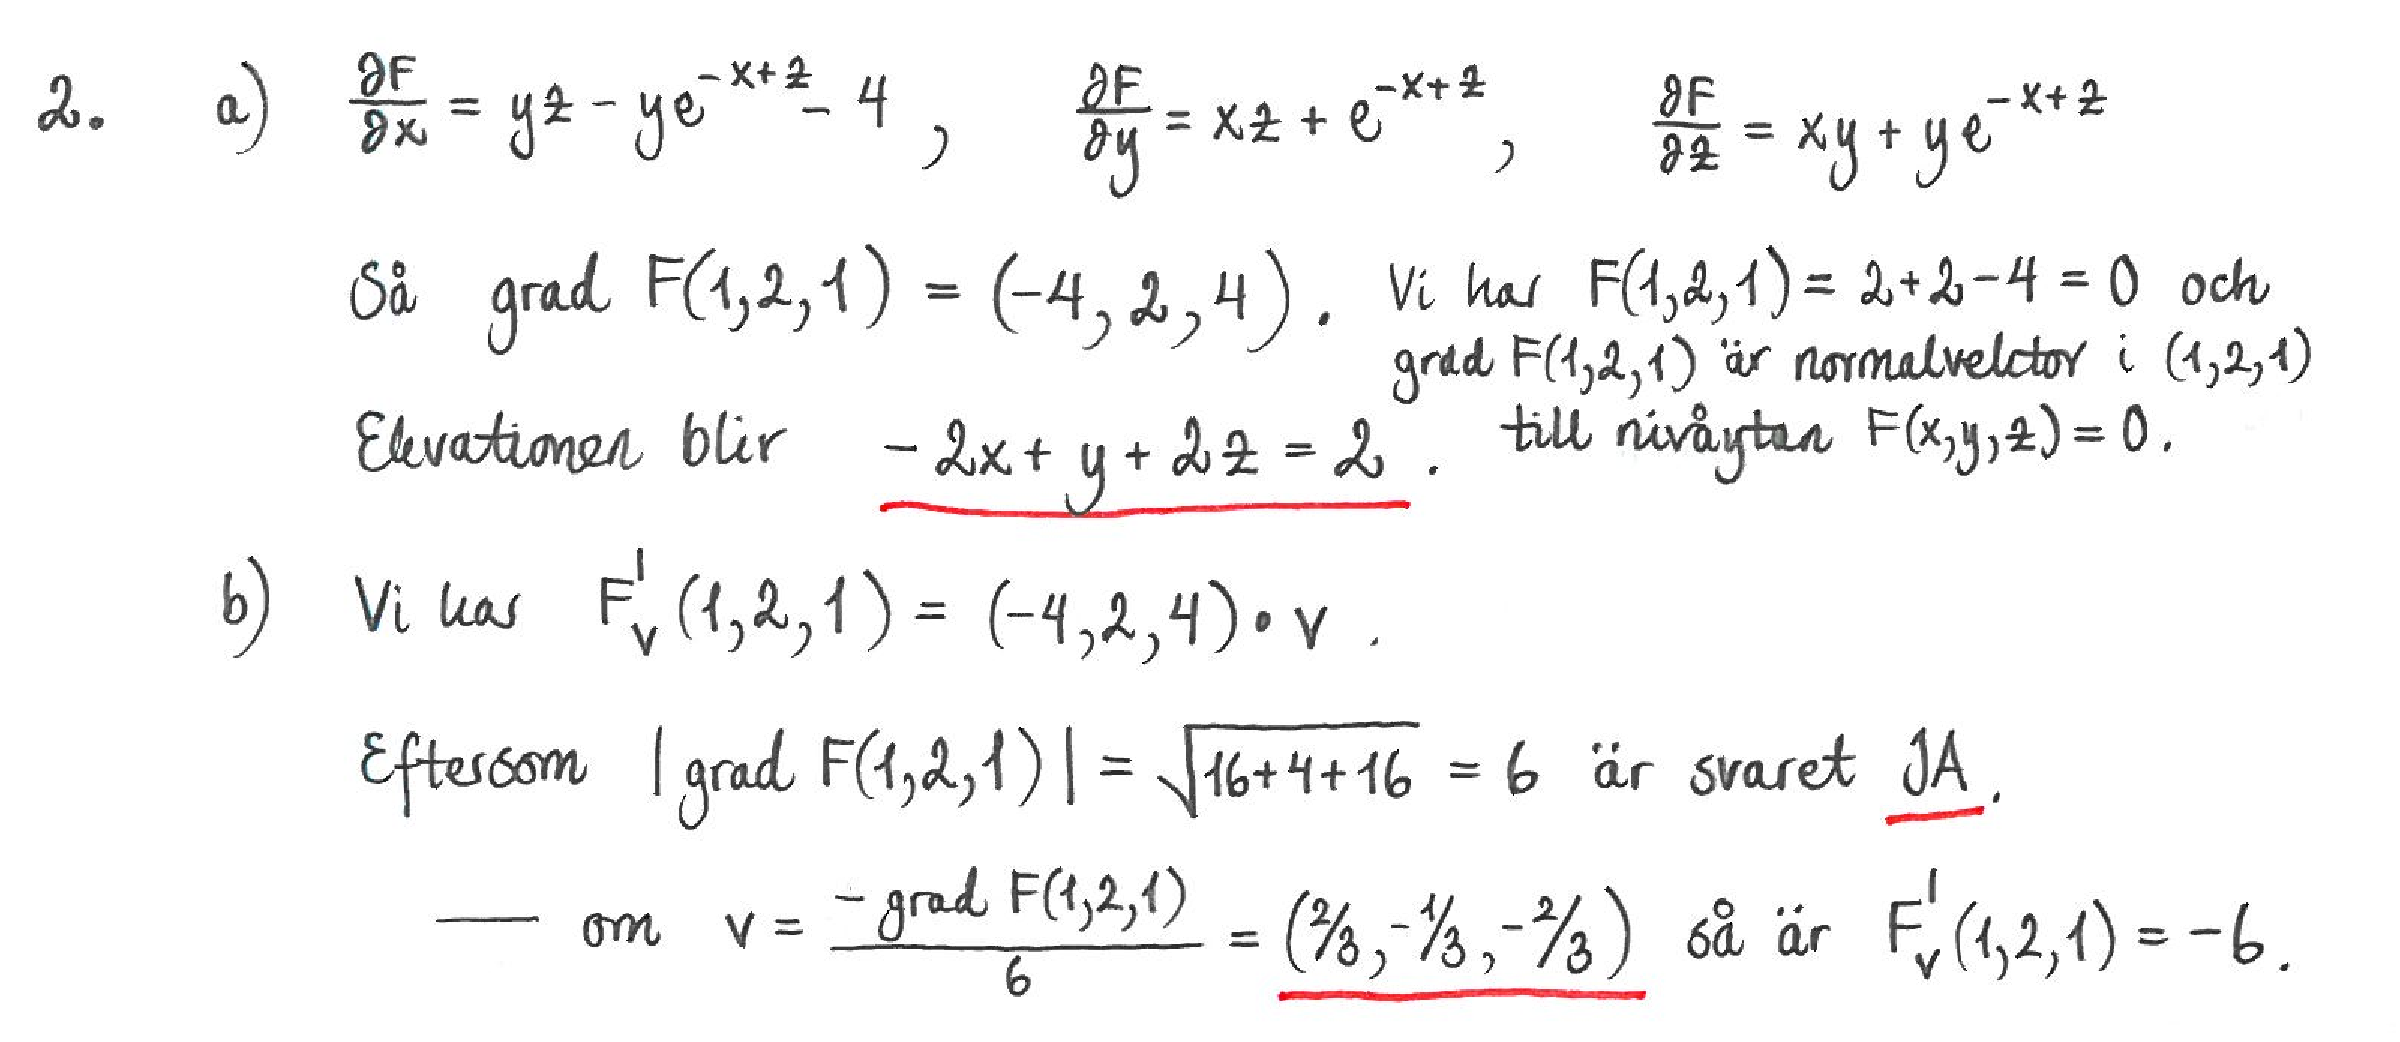 2. a) ∂F/∂x = yz − ye^(−x+z) − 4 , ∂F/∂y = xz + e^(−x+z) , ∂F/∂z = xy + ye^(−x+z)
Så grad F(1,2,1) = (−4,2,4). Vi har F(1,2,1) = 2+2−4 = 0 och
grad F(1,2,1) är normalvektor i (1,2,1)
Ekvationen blir −2x + y + 2z = 2 . till nivåytan F(x,y,z) = 0.
b) Vi har F'_v(1,2,1) = (−4,2,4)•v .
Eftersom |grad F(1,2,1)| = √(16+4+16) = 6 är svaret JA.
— om v = −grad F(1,2,1)/6 = (2/3, −1/3, −2/3) så är F'_v(1,2,1) = −6.